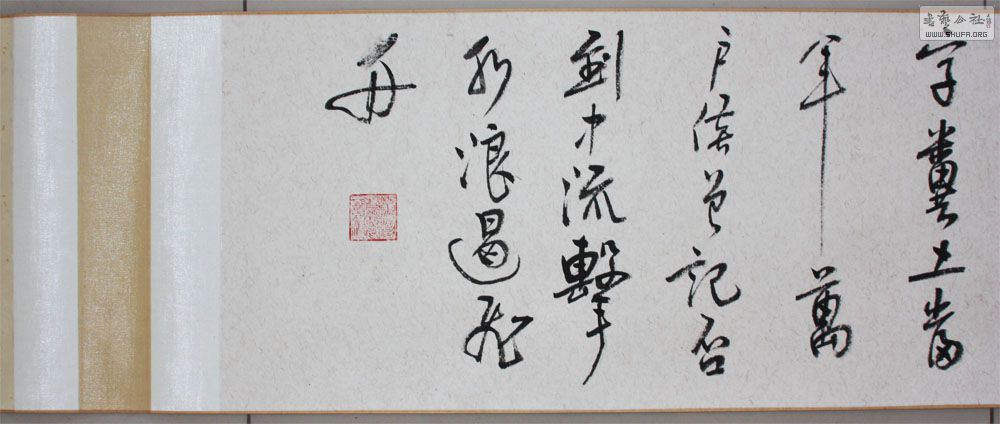 字糞土當
年萬
户侯曾記否
到中流擊
水浪遏飛
舟
書藝公社
WWW.SHUFA.ORG